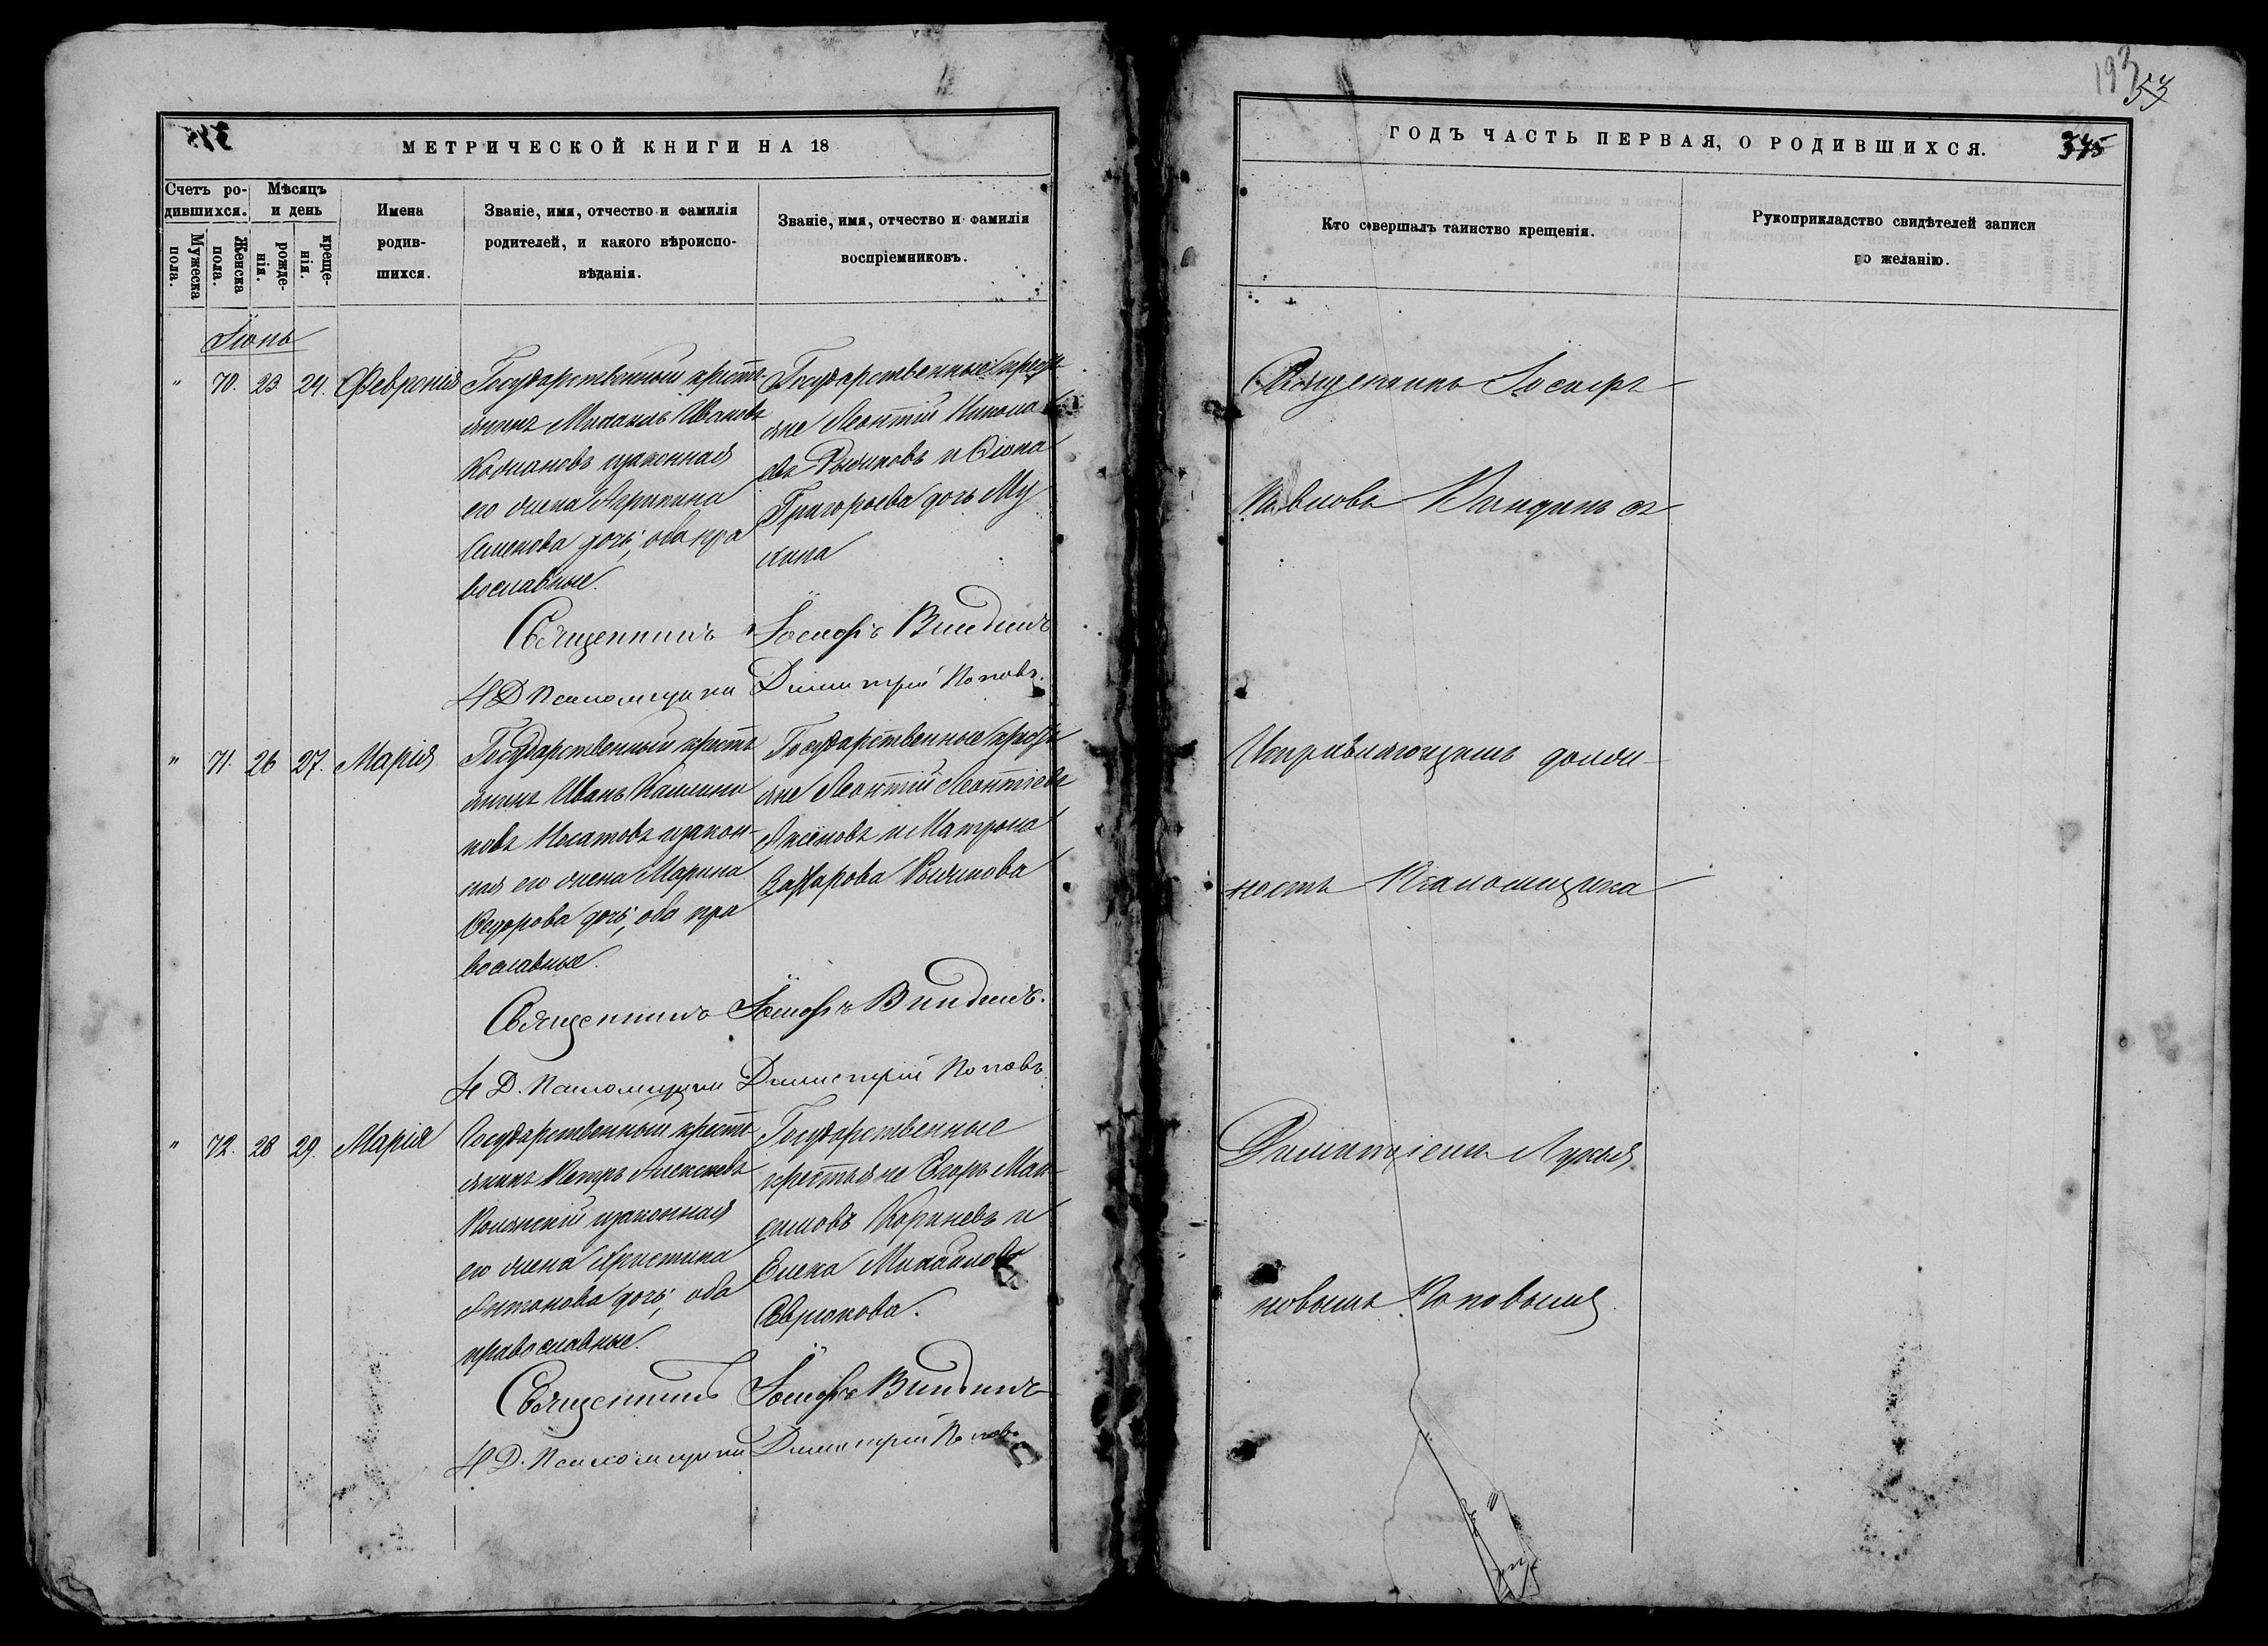 193
53
МЕТРИЧЕСКОЙ КНИГИ НА 18
Счетъ ро-
дившихся.
Мѣсяцъ
и день
Мужеска
пола.
Женска
пола.
рожде-
нія.
креще-
нія.
Имена
родив-
шихся.
Званіе, имя, отчество и фамилія
родителей, и какого вѣроиспо-
вѣданія.
Званіе, имя, отчество и фамилія
воспріемниковъ.
Іюнь
" 70. 23. 24. Февронія
Государственный кресть-
янинъ Михаилъ Ивановъ
и законная
его жена Агрипина
Семенова дочь, оба пра
вославные.
Государственные кресть
яне Леонтій Никола
евъ Рычковъ и
Григорьева дочь Му
хина
Священникъ Іосифъ Виндинъ
И Д Псаломщика Димитрій Поповъ.
" 71. 26 27. Марія
Государственный кресть
янинъ Иванъ
новъ Носатовъ и закон-
ная его жена Марина
Федорова дочь, оба пра
вославные.
Государственные кресть
яне Леонтій Леонтіевъ
Аксёновъ и Матрона
Захарова Рычкова
Священникъ Іосифъ Виндинъ.
И Д. Псаломщика Димитрій Поповъ.
" 72. 28 29. Марія
Государственный кресть
янинъ Петръ Алексѣевъ
и законная
его жена Христина
Антонова дочь, оба
православные.
Государственные
крестьяне Егоръ Мак
симовъ Корневъ и
Елена Михайлова
Севрюкова.
Священникъ Іосифъ Виндинъ
И Д. Псаломщика Димитрій Поповъ
ГОДЪ ЧАСТЬ ПЕРВАЯ, О РОДИВШИХСЯ.
345
Кто совершалъ таинство крещенія.
Рукоприкладство свидѣтелей записи
по желанію.
Священникъ Іосифъ
Павловъ Виндинъ съ
Исправляющимъ долж-
ность Псаломщика
Димитріемъ Лукья
новымъ Поповымъ